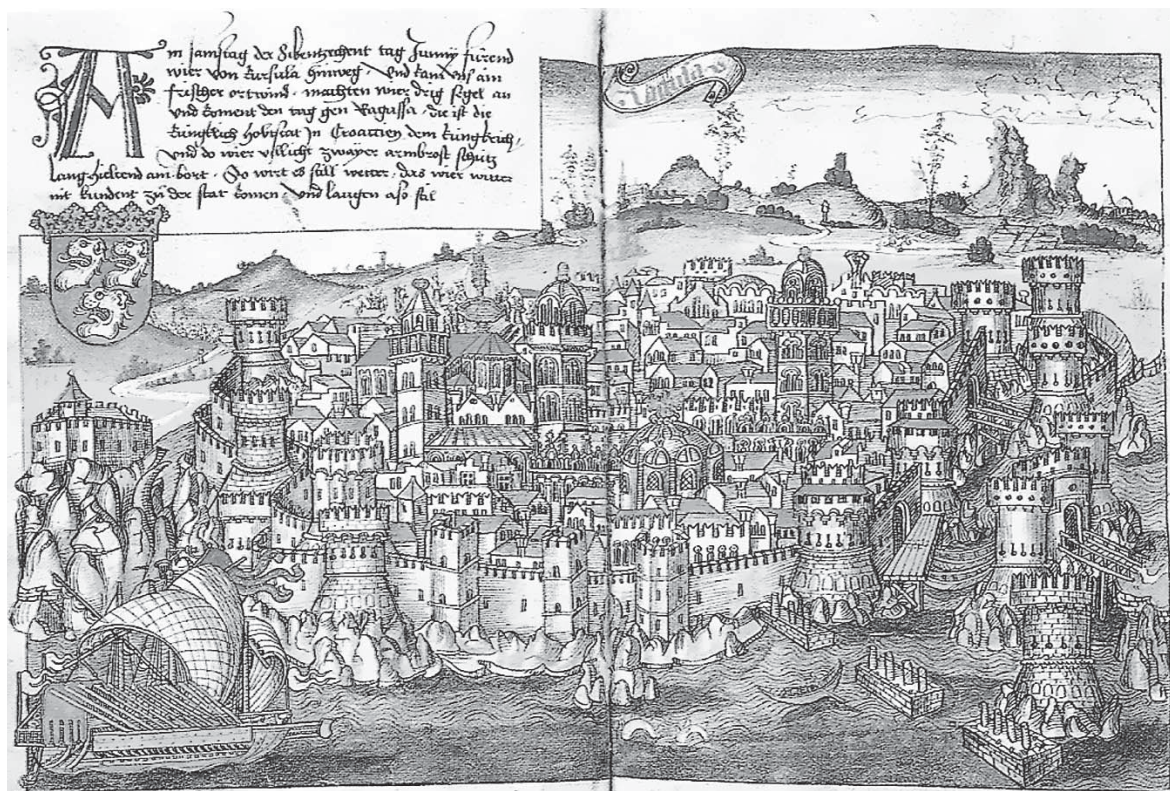 Am samstag der Sibentzechent tag Junny fürend
wier von kursula hinweg · und kam uns ain
frischer ortwind · machten wier drig segel an
und koment den tag gen Ragussa · die ist die
küngklich hobtstat In Croattien dem küngkrich ·
und do wier villicht zwayer armbrost schutz
lang hieltend am bort · Do wirt es still wetter · das wier
nit kundent zů der stat komen und laugen also stil